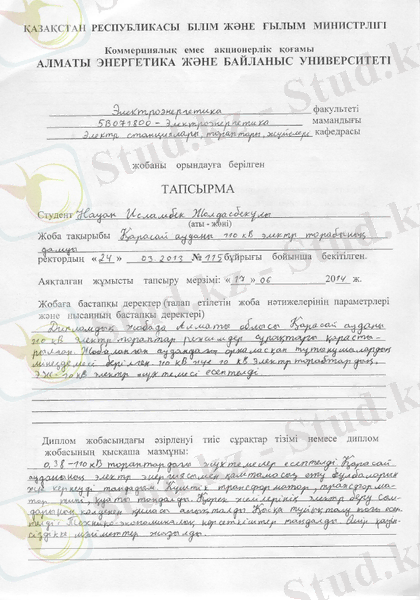 ҚАЗАҚСТАН РЕСПУБЛИКАСЫ БІЛІМ ЖӘНЕ ҒЫЛЫМ МИНИСТРЛІГІ
Коммерциялық емес акционерлік қоғамы
АЛМАТЫ ЭНЕРГЕТИКА ЖӘНЕ БАЙЛАНЫС УНИВЕРСИТЕТІ
Электроэнергетика факультеті
5В071800 - Электроэнергетика мамандығы
Электр станциялары, тораптары, жүйелері кафедрасы
жобаны орындауға берілген
ТАПСЫРМА
Студент Исламбек Жолдасбекұлы
(аты - жөні)
Жоба тақырыбы Қарасай ауданы 110 кВ электр торабының
дамуы
ректордың « 24 » 03 2013 № 115 бұйрығы бойынша бекітілген.
Аяқталған жұмысты тапсыру мерзімі: « 17 » 06 2014 ж.
Жобаға бастапқы деректер (талап етілетін жоба нәтижелерінің параметрлері
және нысанның бастапқы деректері)
Дипломдық жобада Алматы облысы Қарасай ауданы
110 кВ электр тораптар режимдер сұрақтары қарасты-
рылған. Жобаланған аудандағы орналасқан тұтынушылардың
берілген 110 кВ және 10 кВ электр тораптардың.
10 кВ электр жүктемесі есептелді
Диплом жобасындағы әзірленуі тиіс сұрақтар тізімі немесе диплом
жобасының қысқаша мазмұны:
0,38-110 кВ тораптардағы жүктемелер есептелді. Қарасай
ауданының электр энергиясымен қамтамасыз ету сұлбаларын
таңдалды. Күштік трансформатор, трансформа-
тор қуаты таңдалды. электр беру
қимасы анықталды. Қысқа тұйықталу тогы есеп-
телді. Технико-экономикалық көрсеткіштер таңдалды. Өмір қауіп-
сіздік мәліметтер жазылды.
Stud.kz - Stud.kz